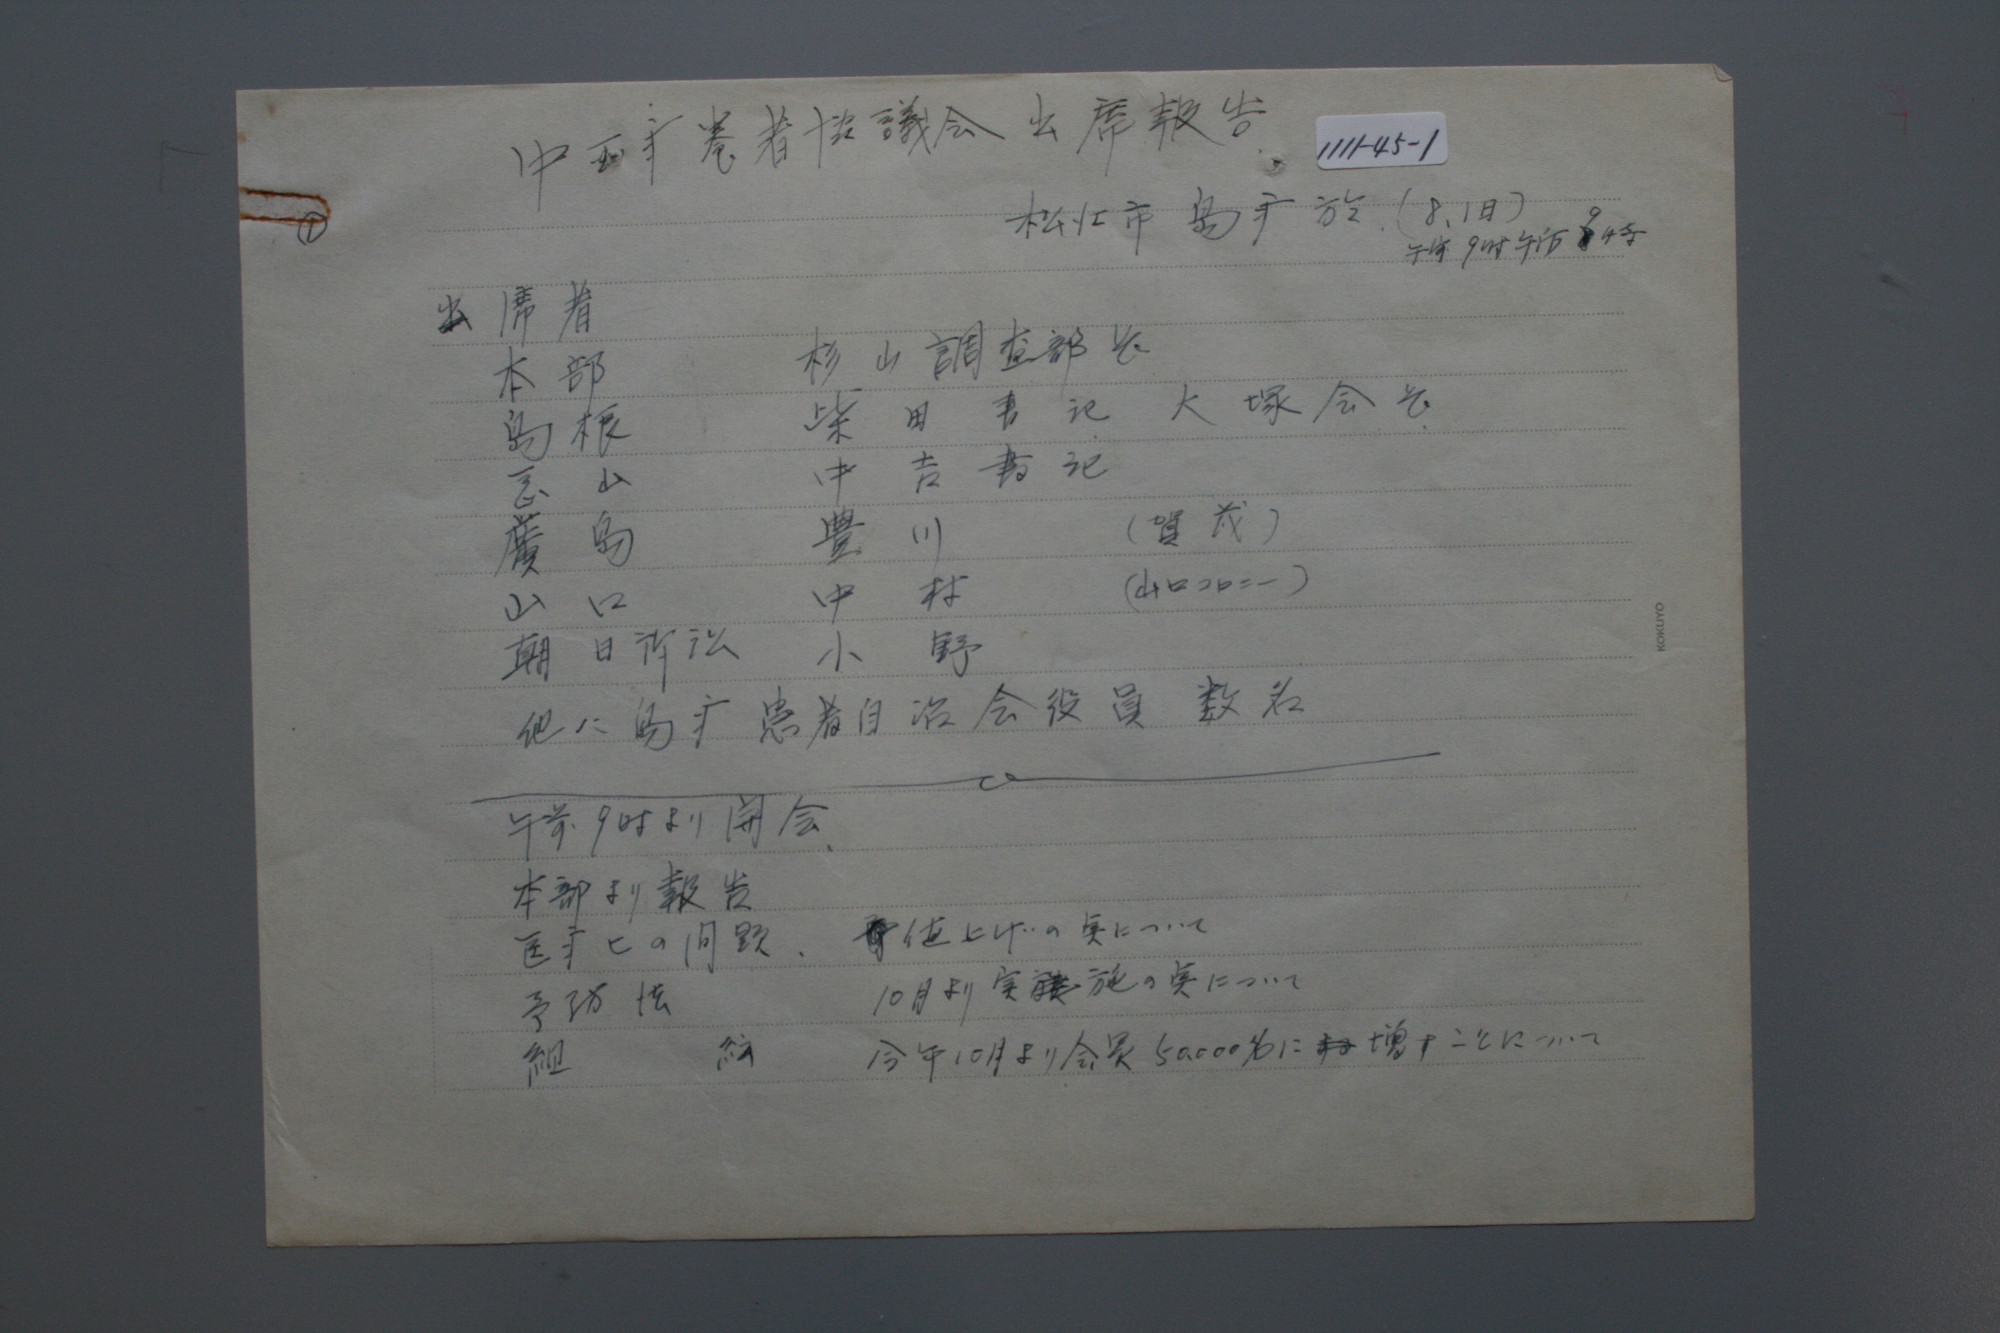 中西疒患者協議会出席報告.
1111-45-1
松江市 島疒 於.(8.1日)
午前9時午后9時
①
出席者
本部 杉山調査部長
島根 柴田書記 大塚会長.
岡山 中吉書記
廣島 豊川 (賀茂)
山口 中村 (山口コロニー)
朝日訴訟 小野
他に島疒患者自治会役員 数名
KOKUYO
午前9時より開会.
本部より報告
医疒ヒの問題. 値上げの実について
予防法 10月より実施の実について
組織 今年10月より会員50,000名に増すことについて